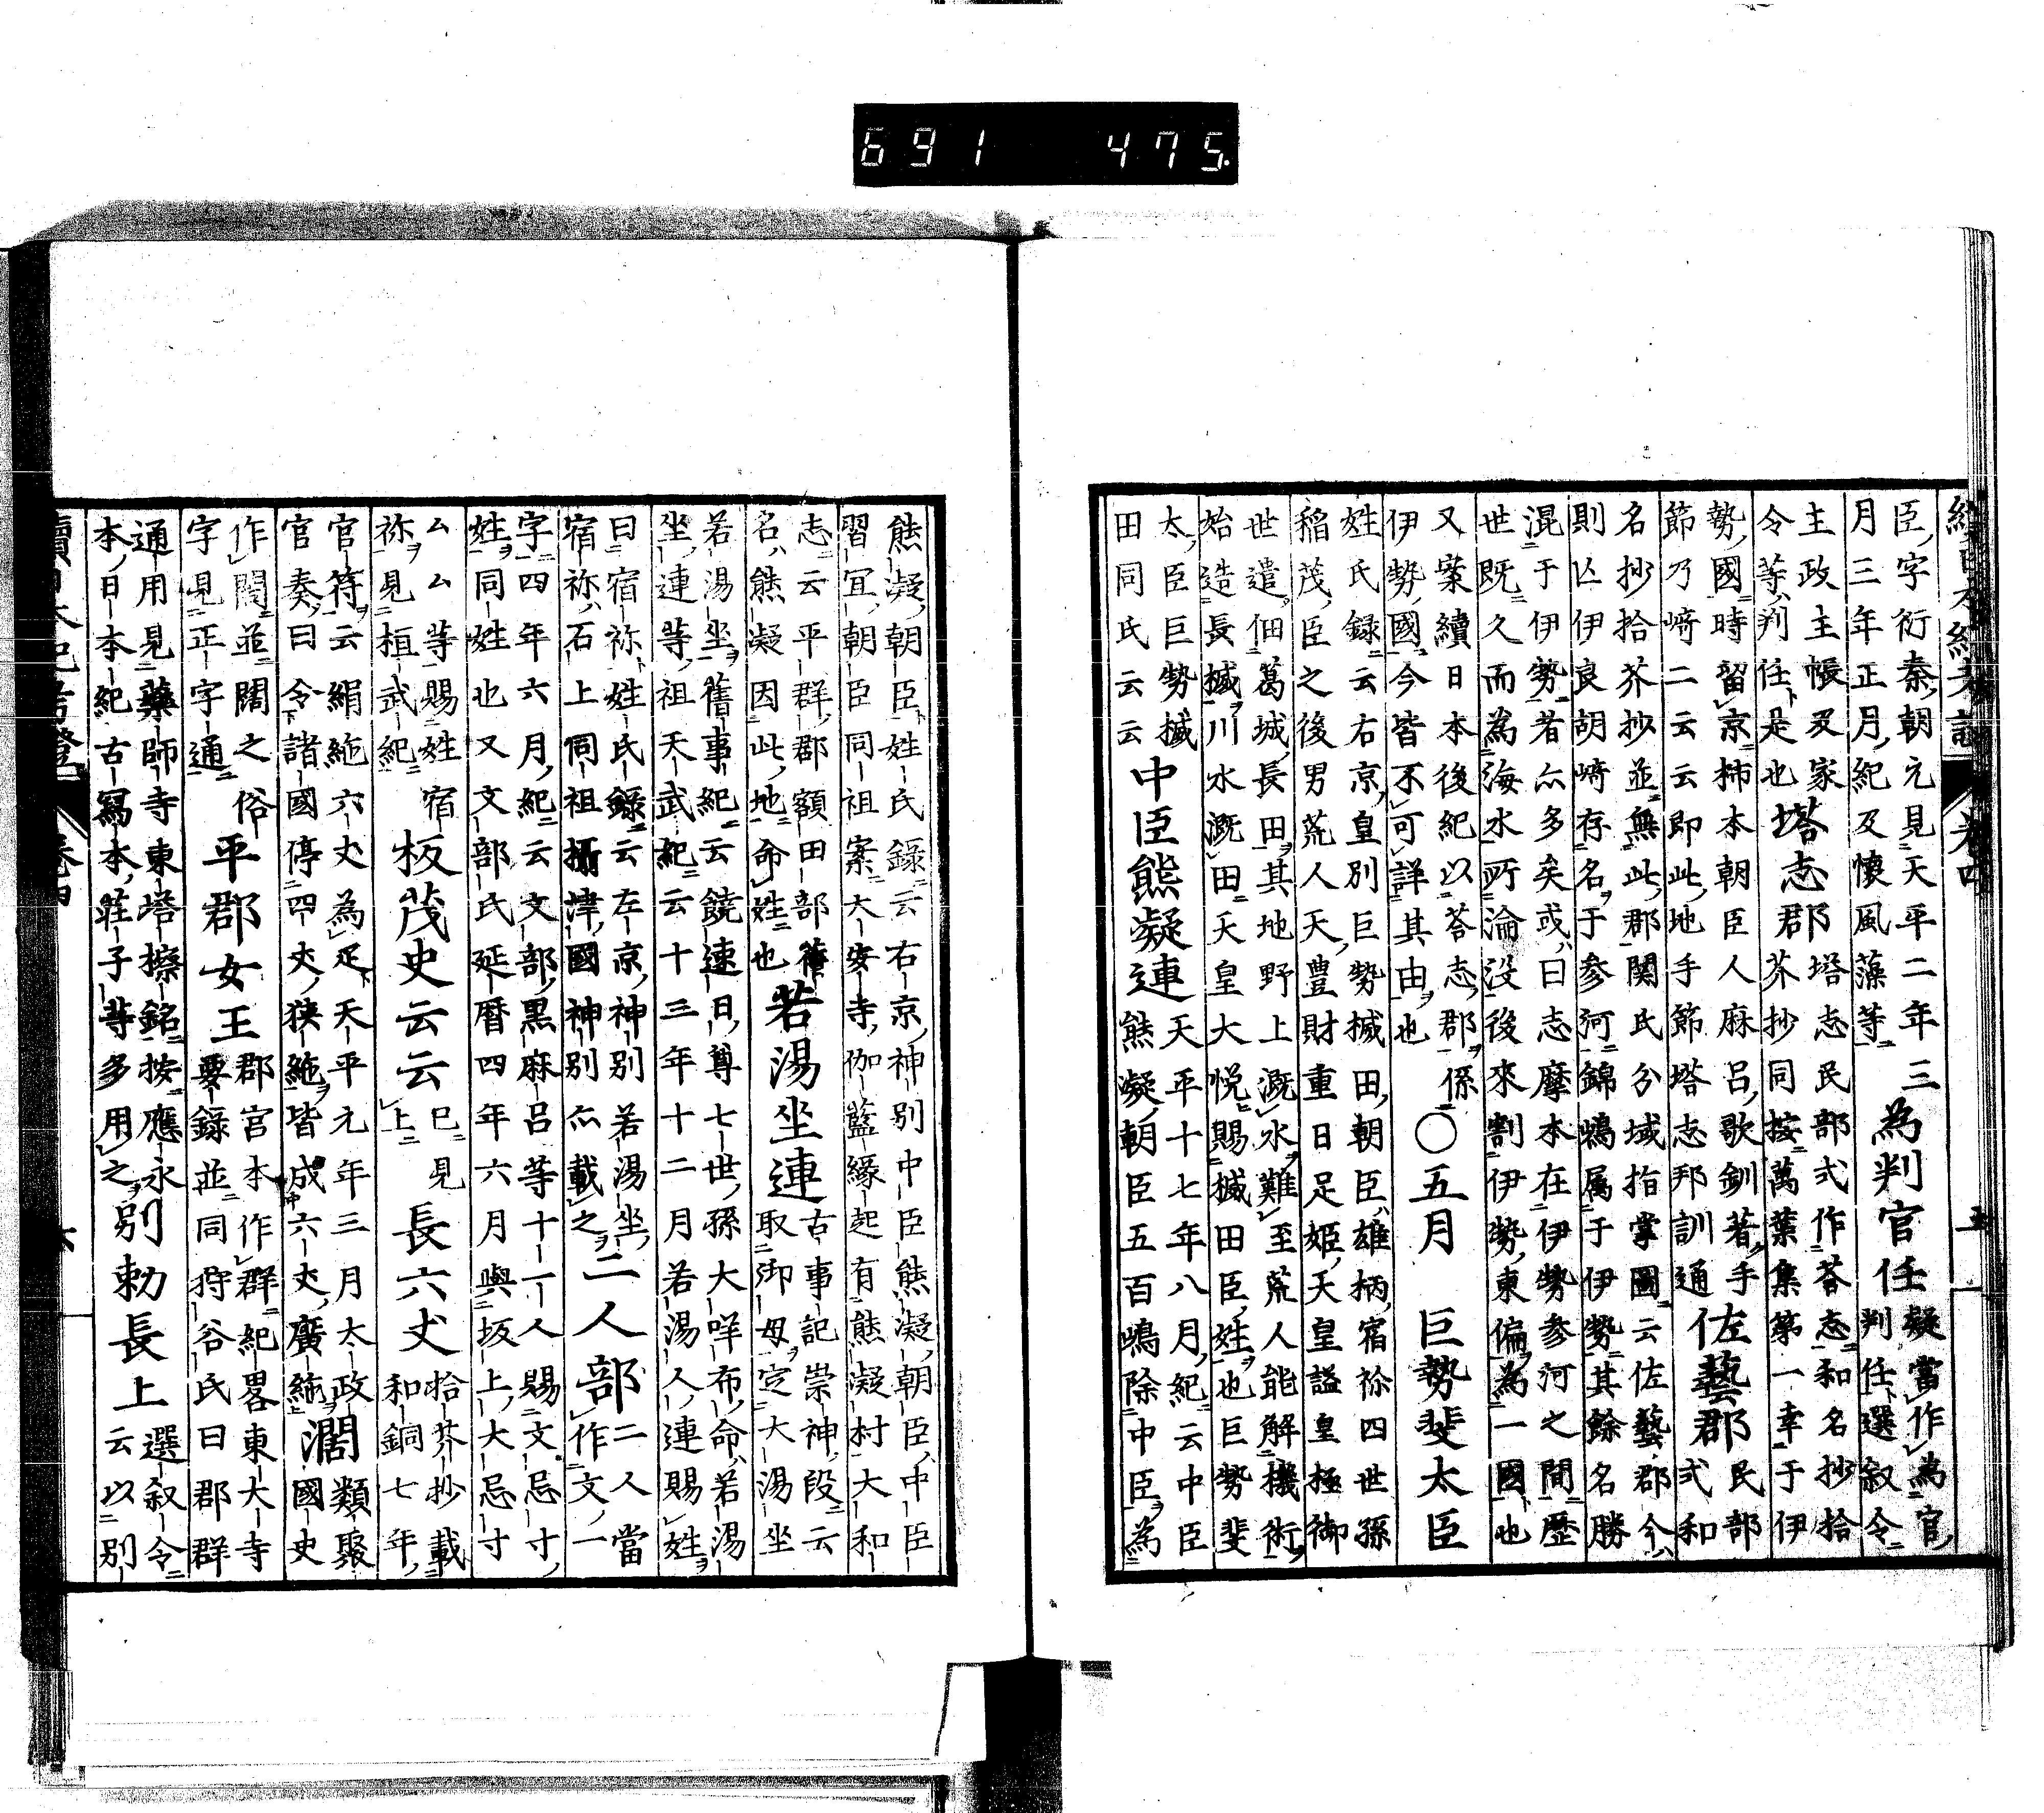 691 475
臣字衍秦朝元見天平二年三
月三年正月紀及懷風藻等
為判官任
疑當作為官
判任選叙令
主政主帳及家
令等判任是也
塔志郡
塔志民部式作荅志和名抄拾
芥抄同按萬葉集第一幸于伊
勢國時留京柿本朝臣人麻呂歌釧著手
節乃﨑二云云即此地手節塔志邦訓通
佐藝郡
民部
式和
名抄拾芥抄並無此郡関民分域指掌圖云佐藝郡今
則亾伊良胡﨑存名于参河錦嶋属于伊勢其餘名勝
混于伊勢者亦多矣或曰志摩本在伊勢参河之間歷
世既久而為海水所淪没後來割伊勢東偏為一國也
又案續日本後紀以荅志郡係
伊勢國今皆不可詳其由也
○五月
巨勢斐太臣
姓氏録云右京皇別巨勢槭田朝臣雄柄宿祢四世孫
稲茂臣之後男荒人天豊財重日足姫天皇謚皇極御
世遣佃葛城長田其地野上溉水難至荒人能解機術
始造長槭川水溉田天皇大悦賜槭田臣姓也巨勢斐
太臣巨勢槭
田同氏云云
中臣熊凝連
天平十七年八月紀云中臣
熊凝朝臣五百嶋除中臣為
熊凝朝臣姓氏録云右京神別中臣熊凝朝臣中臣
習冝朝臣同祖案大安寺伽藍縁起有熊凝村大和
志云平群郡額田部舊
名熊凝因此地命姓也
若湯坐連
古事記崇神段云
取御母定大湯坐
若湯坐舊事紀云饒速日尊七世孫大咩布命若湯
坐連等祖天武紀云十三年十二月若湯人連賜姓
曰宿祢姓氏録云左京神別若湯坐
宿祢石上同祖攝津國神別亦載之
二人部
二人當
作文一
字四年六月紀云文部黒麻呂等十一人賜文忌寸
姓同姓也又文部氏延暦四年六月與坂上大忌寸
ムム等賜姓宿
祢見桓武紀
板茂史云云
巳見
上
長六丈
拾芥抄載
和銅七年
官符云絹絁六丈為疋天平元年三月太政
官奏曰令諸國停四丈狭絁皆成六丈廣絁
濶
類聚
國史
作闊並闊之俗
字見正字通
平郡女王
郡宮本作群紀畧東大寺
要録並同狩谷氏曰郡群
通用見藥師寺東塔擦銘按應永
本日本紀古寫本莊子等多用之
別勅長上
選叙令
云以別